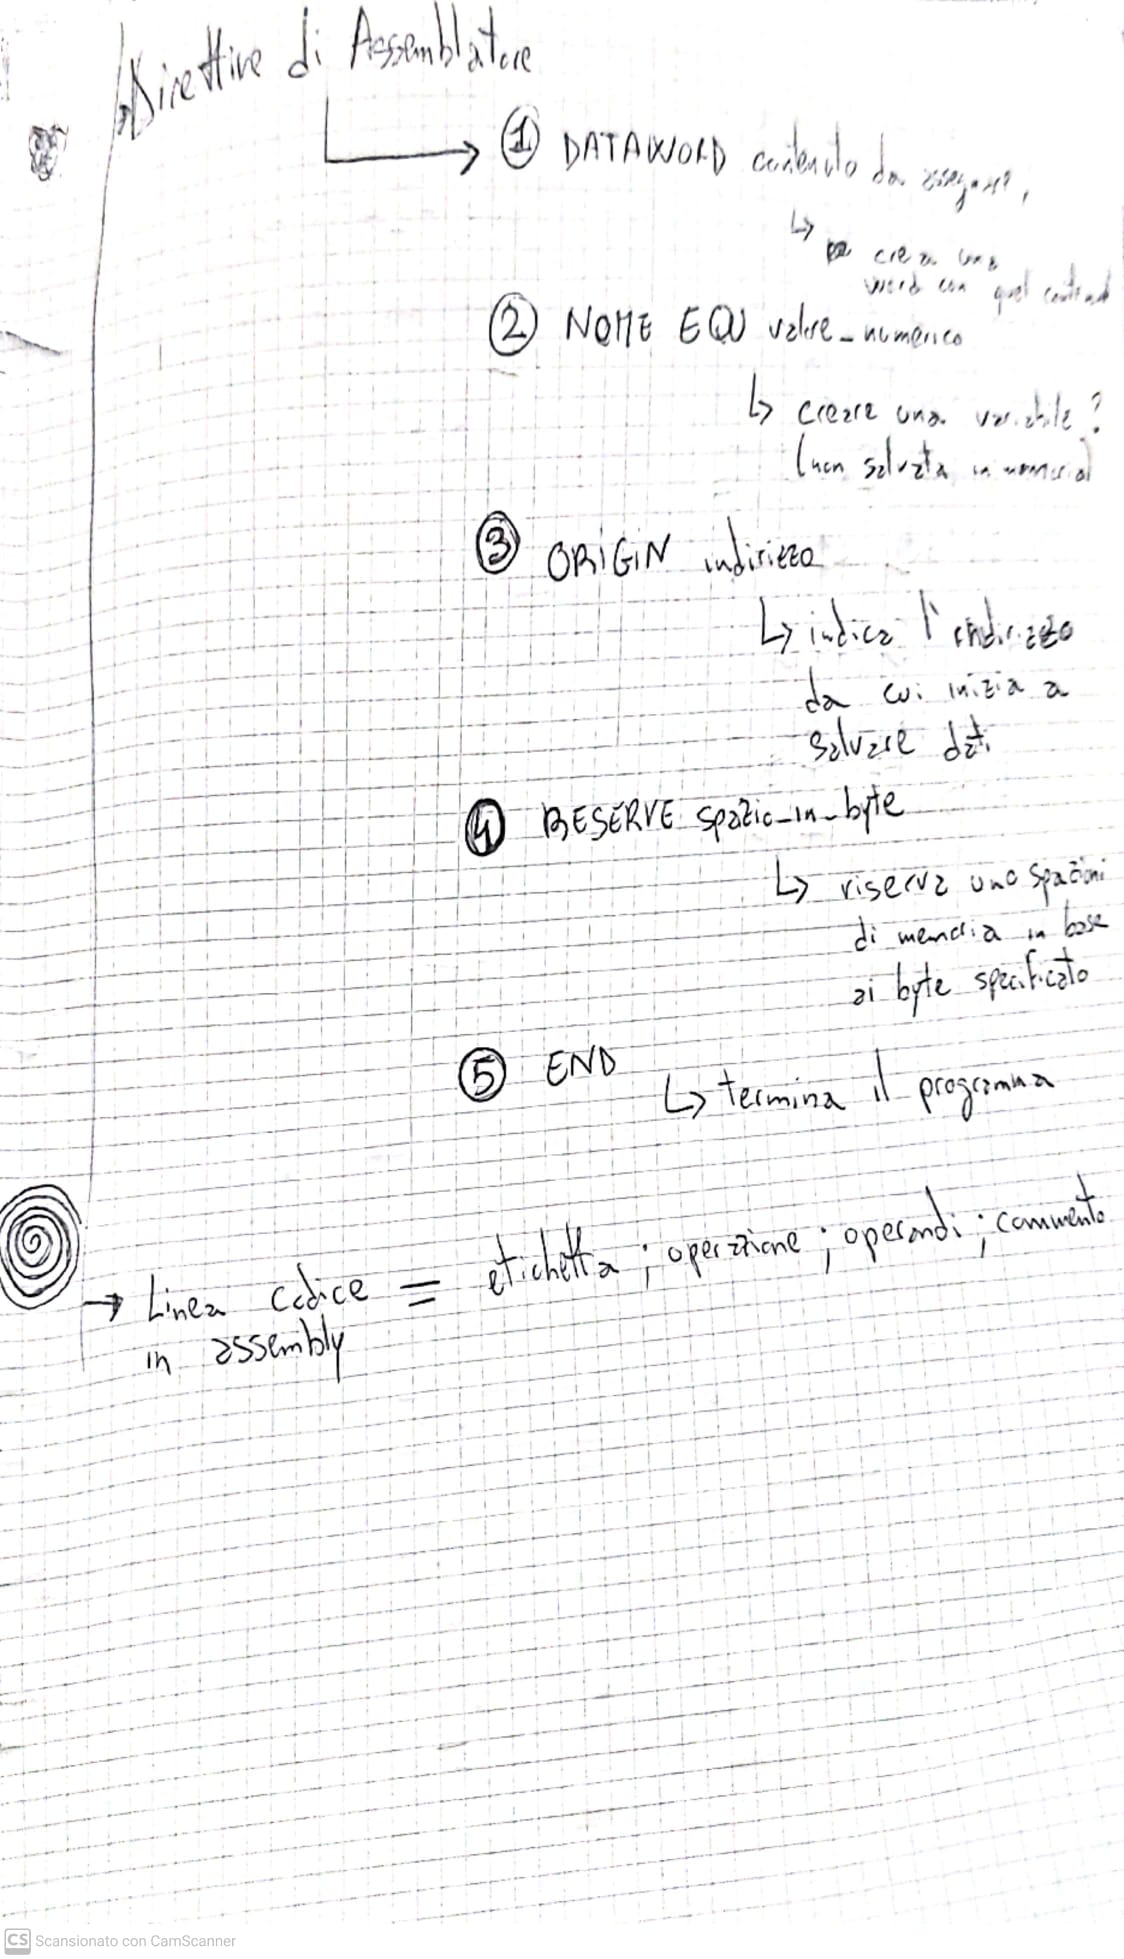 Direttive di Assemblatore
① DATAWORD contenuto da assegnare,
↳ crea una
word con quel contenuto
② NOME EQU valore_numerico
↳ creare una variabile?
(non salvata in memoria)
③ ORIGIN indirizzo
↳ indica l'indirizzo
da cui inizia a
salvare dati
④ RESERVE spazio_in_byte
↳ riserva uno spazioni
di memoria in base
ai byte specificato
⑤ END
↳ termina il programma
→ Linea codice = etichetta ; operazione ; operandi ; commento
in assembly
CS Scansionato con CamScanner